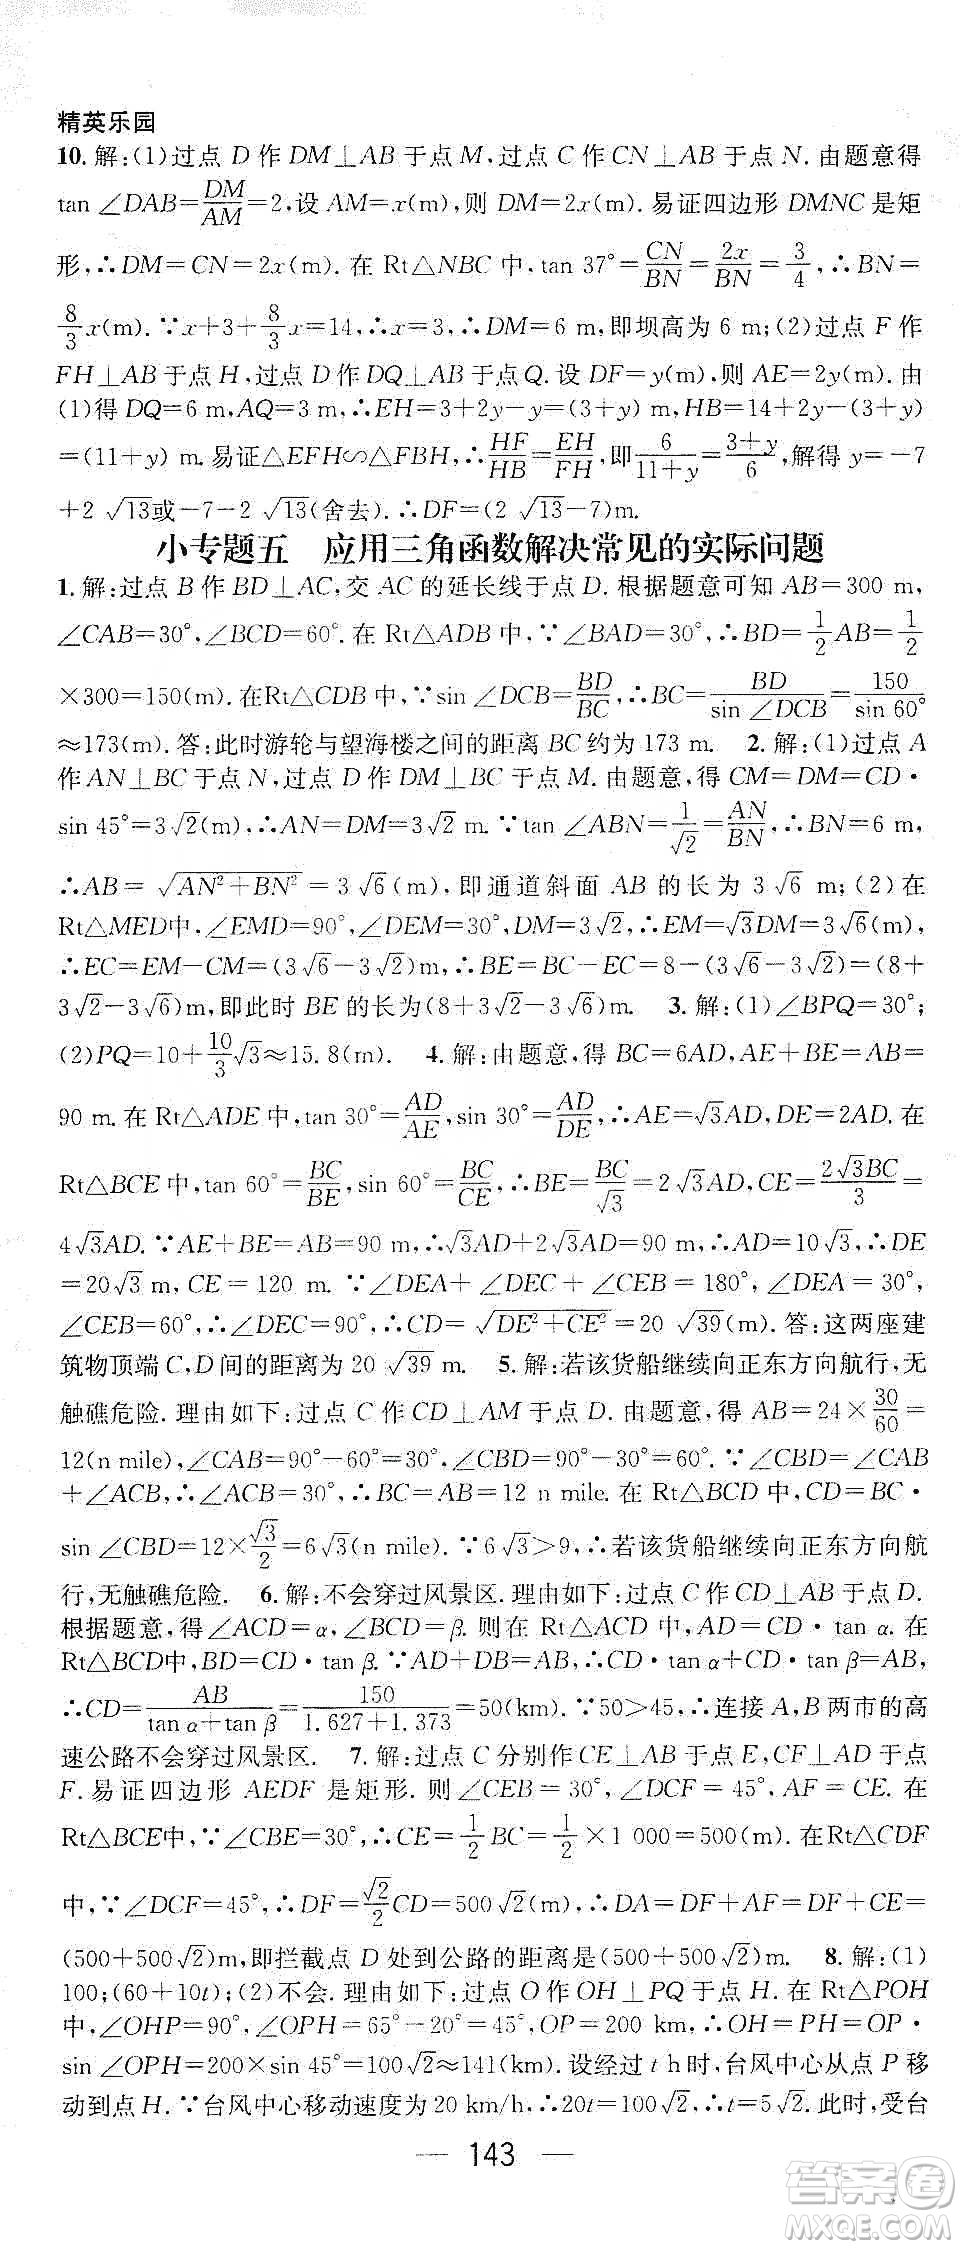 精英乐园
10. 解:(1)过点 D 作 DM⊥AB 于点 M,过点 C 作 CN⊥AB 于点 N. 由题意得
tan ∠DAB=DM/AM=2,设 AM=x(m),则 DM=2x(m). 易证四边形 DMNC 是矩
形,∴DM=CN=2x(m). 在 Rt△NBC 中,tan 37°=CN/BN=2x/BN=3/4,∴BN=
8/3x(m). ∵x+3+8/3x=14,∴x=3,∴DM=6 m,即坝高为 6 m;(2)过点 F 作
FH⊥AB 于点 H,过点 D 作 DQ⊥AB 于点 Q. 设 DF=y(m),则 AE=2y(m). 由
(1)得 DQ=6 m,AQ=3 m,∴EH=3+2y−y=(3+y) m,HB=14+2y−(3+y)
=(11+y) m. 易证△EFH∽△FBH,∴HF/HB=EH/FH,即6/(11+y)=(3+y)/6,解得 y=−7
+2√13或−7−2√13(舍去). ∴DF=(2√13−7)m.
小专题五 应用三角函数解决常见的实际问题
1. 解:过点 B 作 BD⊥AC,交 AC 的延长线于点 D. 根据题意可知 AB=300 m,
∠CAB=30°,∠BCD=60°. 在 Rt△ADB 中,∵∠BAD=30°,∴BD=1/2AB=1/2
×300=150(m). 在Rt△CDB 中,∵sin ∠DCB=BD/BC,∴BC=BD/sin ∠DCB=150/sin 60°
≈173(m). 答:此时游轮与望海楼之间的距离 BC 约为 173 m. 2. 解:(1)过点 A
作 AN⊥BC 于点 N,过点 D 作 DM⊥BC 于点 M. 由题意,得 CM=DM=CD·
sin 45°=3√2(m),∴AN=DM=3√2 m. ∵tan ∠ABN=1/√2=AN/BN,∴BN=6 m,
∴AB=√(AN²+BN²)=3√6(m),即通道斜面 AB 的长为 3√6 m;(2)在
Rt△MED中,∠EMD=90°,∠DEM=30°,DM=3√2,∴EM=√3DM=3√6(m),
∴EC=EM−CM=(3√6−3√2)m,∴BE=BC−EC=8−(3√6−3√2)=(8+
3√2−3√6)m,即此时 BE 的长为(8+3√2−3√6)m. 3. 解:(1)∠BPQ=30°;
(2)PQ=10+10/3√3≈15.8(m). 4. 解:由题意,得 BC=6AD,AE+BE=AB=
90 m. 在 Rt△ADE 中,tan 30°=AD/AE,sin 30°=AD/DE,∴AE=√3AD,DE=2AD. 在
Rt△BCE 中,tan 60°=BC/BE,sin 60°=BC/CE,∴BE=BC/√3=2√3AD,CE=2√3BC/3=
4√3AD. ∵AE+BE=AB=90 m,∴√3AD+2√3AD=90 m,∴AD=10√3,∴DE
=20√3 m,CE=120 m. ∵∠DEA+∠DEC+∠CEB=180°,∠DEA=30°,
∠CEB=60°,∴∠DEC=90°,∴CD=√(DE²+CE²)=20√39(m). 答:这两座建
筑物顶端 C,D 间的距离为 20√39 m. 5. 解:若该货船继续向正东方向航行,无
触礁危险. 理由如下:过点 C 作 CD⊥AM 于点 D. 由题意,得 AB=24×30/60=
12(n mile),∠CAB=90°−60°=30°,∠CBD=90°−30°=60°. ∵∠CBD=∠CAB
+∠ACB,∴∠ACB=30°,∴BC=AB=12 n mile. 在 Rt△BCD 中,CD=BC·
sin ∠CBD=12×√3/2=6√3(n mile). ∵6√3>9,∴若该货船继续向正东方向航
行,无触礁危险. 6. 解:不会穿过风景区. 理由如下:过点 C 作 CD⊥AB 于点 D.
根据题意,得∠ACD=α,∠BCD=β. 则在 Rt△ACD 中,AD=CD·tan α. 在
Rt△BCD中,BD=CD·tan β. ∵AD+BD=AB,∴CD·tan α+CD·tan β=AB,
∴CD=AB/(tan α+tan β)=150/(1.627+1.373)=50(km). ∵50>45,∴连接 A,B 两市的高
速公路不会穿过风景区. 7. 解:过点 C 分别作 CE⊥AB 于点 E,CF⊥AD 于点
F. 易证四边形 AEDF 是矩形. 则∠CEB=30°,∠DCF=45°,AF=CE. 在
Rt△BCE中,∵∠CBE=30°,∴CE=1/2BC=1/2×1 000=500(m). 在Rt△CDF
中,∵∠DCF=45°,∴DF=√2/2CD=500√2(m),∴DA=DF+AF=DF+CE=
(500+500√2)m,即拦截点 D 处到公路的距离是(500+500√2)m. 8. 解:(1)
100;(60+10t);(2)不会. 理由如下:过点 O 作 OH⊥PQ 于点 H. 在 Rt△POH
中,∠OHP=90°,∠OPH=65°−20°=45°,OP=200 km,∴OH=PH=OP·
sin ∠OPH=200×sin 45°=100√2≈141(km). 设经过 t h时,台风中心从点 P 移
动到点 H. ∵台风中心移动速度为 20 km/h,∴20t=100√2,∴t=5√2. 此时,受台
— 143 —
答案圈
MXQE.COM